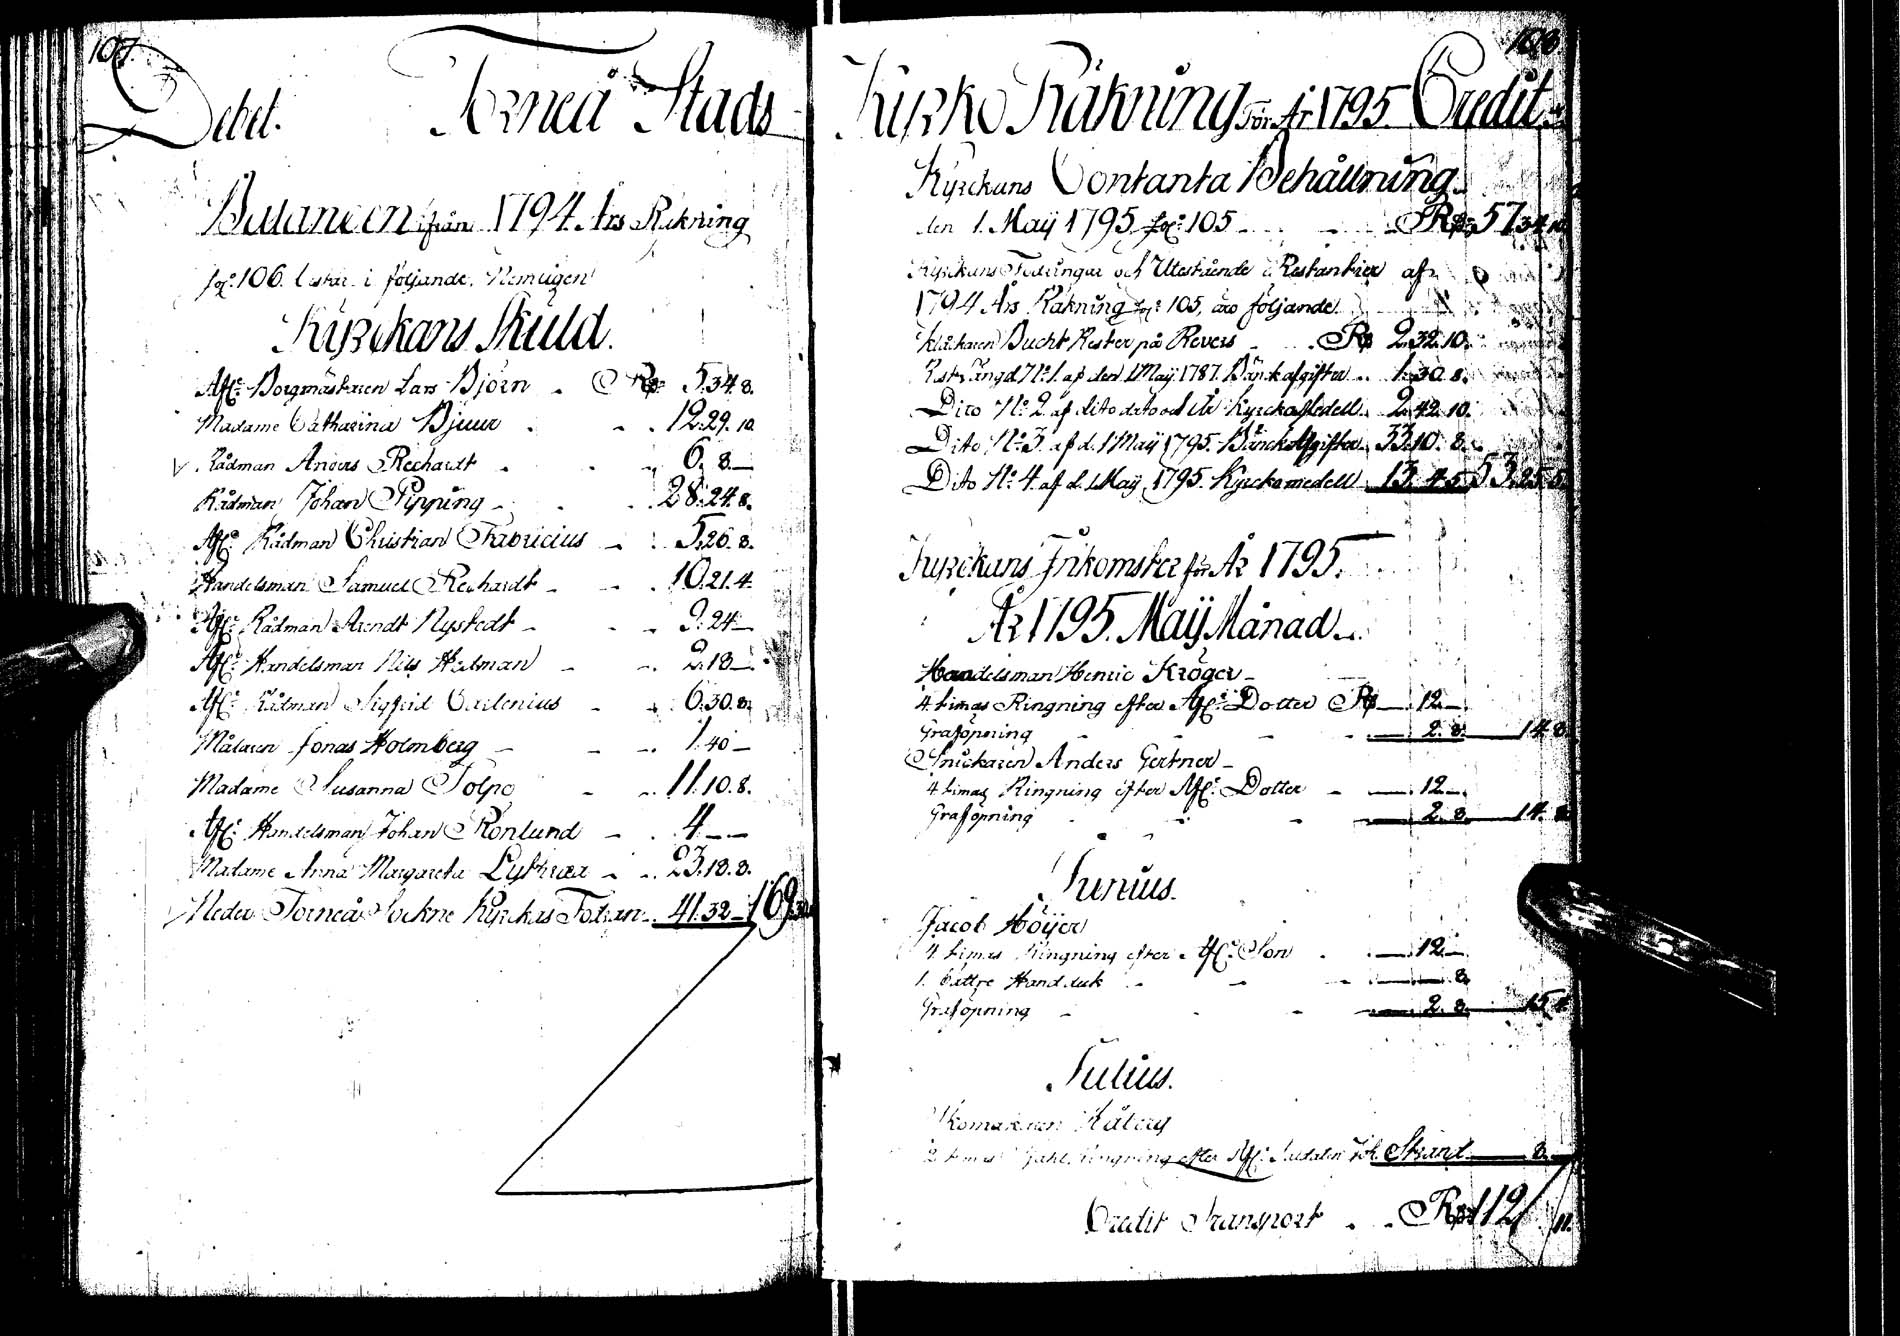 107.
Debet. Torneå Stads
Balancen ifrån 1794 Års Räkning
fol: 106. bestar i följande. Nemligen
Kyrckans Skuld.
Afl: Borgmästaren Lars Björn - Rd: 5.34.8.
Madame Catharina Bjuur - - 12.29.10
Rådman Anders Rechardt - - 6.8.—
Rådman Johan Pipping - - 28.24.8.
Afl: Rådman Christian Fabricius - - 5.26.8.
Handelsman Samuel Rechardt - - 10.21.4.
Afl: Rådman Arendt Nystedt - - 9.24—
Afl: Handelsman Nils - - 2.18—
Afl: Rådman Sigfrid Carlenius - - 6.30.8.
Målaren Jonas Holmberg - - 1.40—
Madame Susanna Tolpo - - 11.10.8.
Afl: Handelsman Johan Rönlund - - 4.——
Madame Anna Margareta - - 23.18.8.
Neder Torneå Sockne Kyrckas 41.32— 169.
168
Kyrko Räkning För År 1795 Credit
Kyrckans Contanta Behållning
den 1. Maÿ 1795 fol: 105 - - - Rd: 57.34.10.
Kyrckans Fodringar och Utestående Restantier af
1794 Års Räkning fol: 105, äro följande
Bucht Rester på Revers - - Rd 2.32.10.
Restlängd N:o 1. af den 1 Maÿ 1787. Bänckafgifter - 1.30.8.
Dito N:o 2 af dito dato och År Kyrckomedell 2.42.10.
Dito N:o 3 af d. 1 Maÿ 1795. Bänckafgifter 33.10.8.
Dito N:o 4. af d. 1 Maÿ 1795. Kyrckomedell 13.4.5. 53.25.5.
Kyrckans Inkomster för År 1795.
År 1795. Maÿ Månad
Handelsman Henric Kröger -
4 timas Ringning efter Afl: Dotter Rd — 12 —
Graföpning - - - — 2.8. — 14.8.
Snickaren Anders Gertner -
4 timas Ringning efter Afl: Dotter - — 12 —
Graföpning - - - — 2.8. — 14.8.
Junius.
Jacob Höÿer
4 timas Ringning efter Afl: Son - — 12 —
1. bättre Handduk - - - — 8.
Graföpning - - - — 2.8. 15.4.
Julius.
Skomakaren
2 timas Ringning efter Afl: Soldaten Joh. Strand 8.—
Credit Transport - - Rd: 112 11.